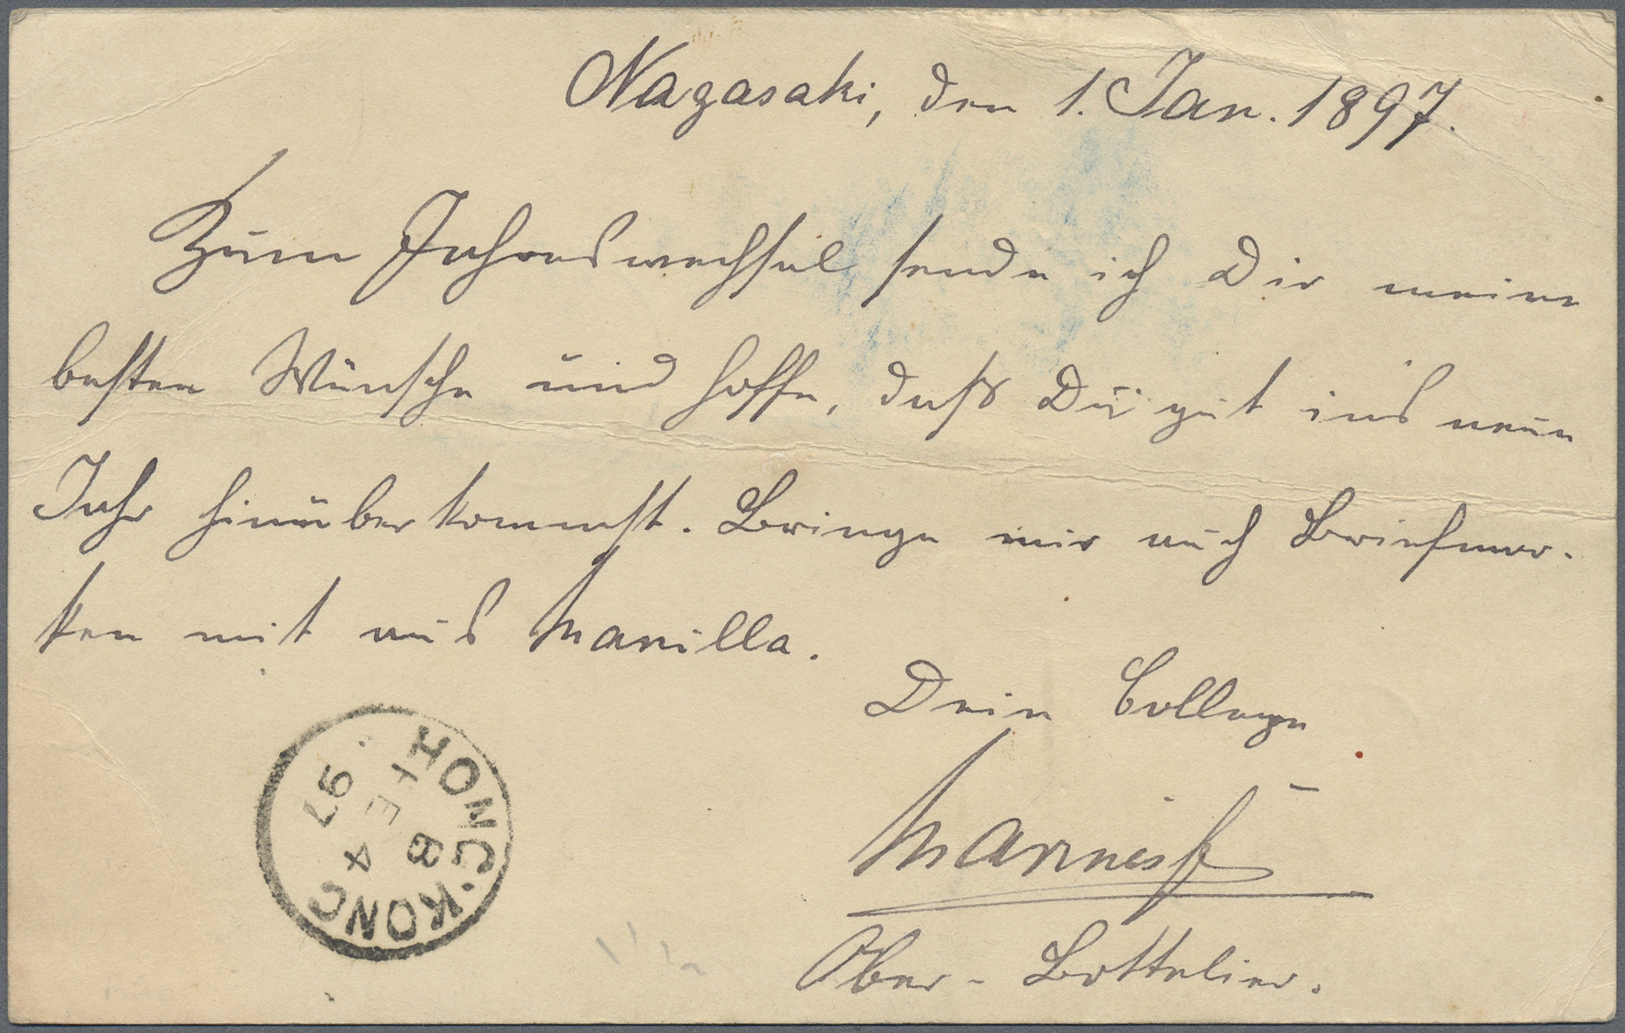 Nagasaki, den 1. Jan. 1897.
Zum Jahreswechsel sende ich Dir meine
besten Wünsche und hoffe, daß Du gut ins neue
Jahr hinüberkommst. Bringe mir auch Briefmar-
ken mit aus Manilla.
Dein College
Ober-Bottelier.
HONG·KONG
B
FE 4
97